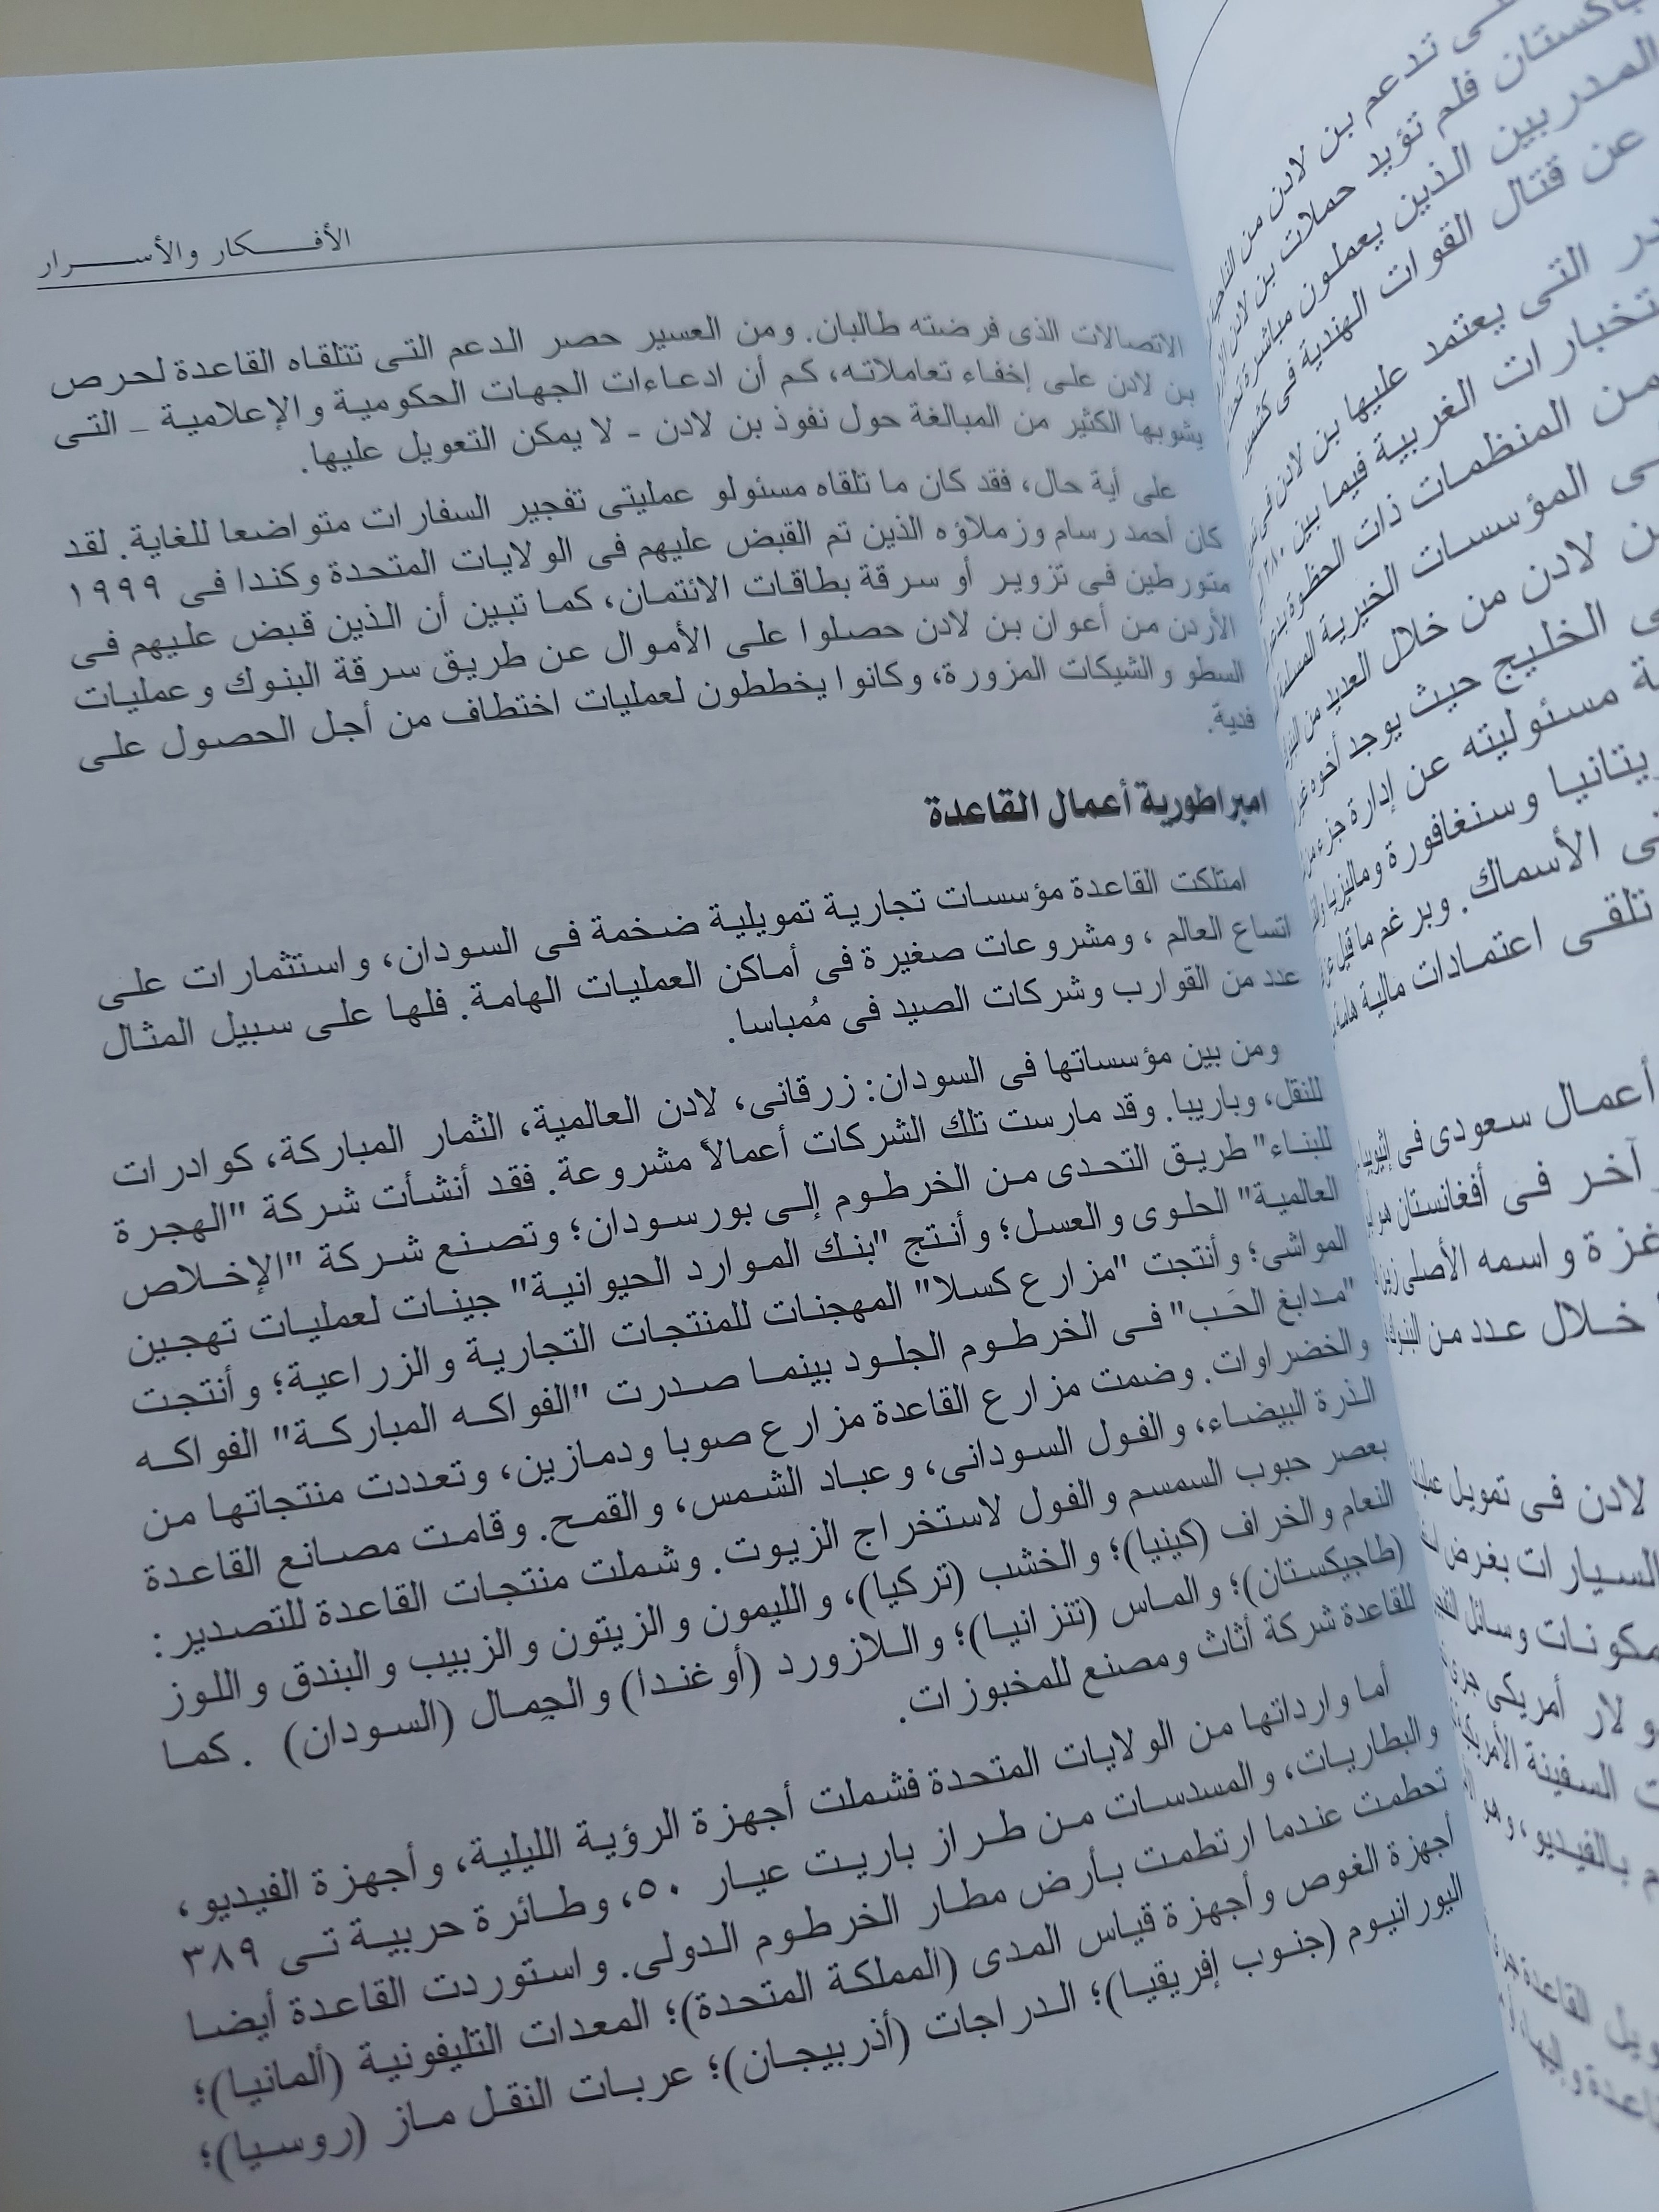 الأفكار والأسرار
الاتصالات الذى فرضته طالبان. ومن العسير حصر الدعم التى تتلقاه القاعدة لحرص
بن لادن على إخفاء تعاملاته، كم أن ادعاءات الجهات الحكومية والإعلامية - التى
يشوبها الكثير من المبالغة حول نفوذ بن لادن - لا يمكن التعويل عليها.
على أية حال، فقد كان ما تلقاه مسئولو عمليتى تفجير السفارات متواضعا للغاية. لقد
كان أحمد رسام وزملاؤه الذين تم القبض عليهم فى الولايات المتحدة وكندا فى ١٩٩٩
متورطين فى تزوير أو سرقة بطاقات الائتمان، كما تبين أن الذين قبض عليهم فى
الأردن من أعوان بن لادن حصلوا على الأموال عن طريق سرقة البنوك وعمليات
السطو والشيكات المزورة، وكانوا يخططون لعمليات اختطاف من أجل الحصول على
فدية.
امبراطورية أعمال القاعدة
امتلكت القاعدة مؤسسات تجارية تمويلية ضخمة فى السودان، واستثمارات على
اتساع العالم ، ومشروعات صغيرة فى أماكن العمليات الهامة. فلها على سبيل المثال
عدد من القوارب وشركات الصيد فى مُمباسا.
ومن بين مؤسساتها فى السودان: زرقانى، لادن العالمية، الثمار المباركة، كوادرات
للنقل، وباريبا. وقد مارست تلك الشركات أعمالاً مشروعة. فقد أنشأت شركة "الهجرة
للبناء" طريق التحدى من الخرطوم إلى بورسودان؛ وتصنع شركة "الإخلاص
العالمية" الحلوى والعسل؛ وأنتج "بنك الموارد الحيوانية" جينات لعمليات تهجين
المواشى؛ وأنتجت "مزارع كسلا" المهجنات للمنتجات التجارية والزراعية؛ وأنتجت
"مدابغ الحَب" فى الخرطوم الجلود بينما صدرت "الفواكه المباركة" الفواكه
والخضراوات. وضمت مزارع القاعدة مزارع صوبا ودمازين، وتعددت منتجاتها من
الذرة البيضاء، والفول السودانى، وعباد الشمس، والقمح. وقامت مصانع القاعدة
بعصر حبوب السمسم والفول لاستخراج الزيوت. وشملت منتجات القاعدة للتصدير:
النعام والخراف (كينيا)؛ والخشب (تركيا)، والليمون والزيتون والزبيب والبندق واللوز
(طاجيكستان)؛ والماس (تتزانيا)؛ واللازورد (أوغندا) والجمال (السودان) . كما
للقاعدة شركة أثاث ومصنع للمخبوزات.
أما وارداتها من الولايات المتحدة فشملت أجهزة الرؤية الليلية، وأجهزة الفيديو،
والبطاريات، والمسدسات من طراز باريت عيار ٥٠، وطائرة حربية تى ٣٨٩
تحطمت عندما ارتطمت بأرض مطار الخرطوم الدولى. واستوردت القاعدة أيضا
أجهزة الغوص وأجهزة قياس المدى (المملكة المتحدة)؛ المعدات التليفونية (ألمانيا)؛
اليورانيوم (جنوب إفريقيا)؛ الدراجات (أذربيجان)؛ عربات النقل ماز (روسيا)؛
تدعم بن لادن من
باكستان فلم تؤيد حملات بن لادن
المدربين الذين يعملون مباشرة
عن قتال القوات الهندية فى كشمير
التى يعتمد عليها بن لادن فى
الغربية فيما بين
من المنظمات ذات الحظوة
المؤسسات الخيرية
لادن من خلال العديد من
الخليج حيث يوجد أخوه
مسئوليته عن إدارة جزء من
وسنغافورة وماليزيا
الأسماك. وبرغم ما قيل
تلقى اعتمادات مالية
أعمال سعودى فى إثيوبيا
آخر فى أفغانستان هو
غزة واسمه الأصلى
خلال عدد من
لادن فى تمويل
السيارات بغرض
مكونات وسائل
أمريكى
السفينة
بالفيديو، وهو
القاعدة